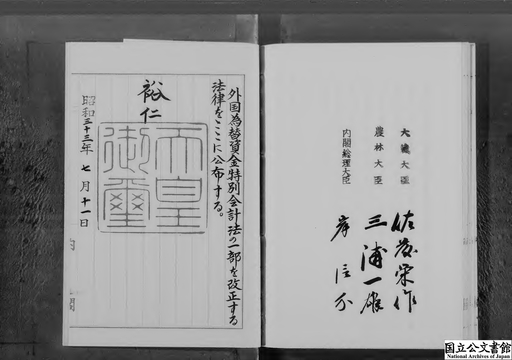 外国為替資金特別会計法の一部を改正する
法律をここに公布する。
裕仁
天皇
御璽
昭和三十三年七月十一日
内閣
大蔵大臣 佐藤栄作
農林大臣 三浦一雄
内閣総理大臣 岸信介
国立公文書館
National Archives of Japan